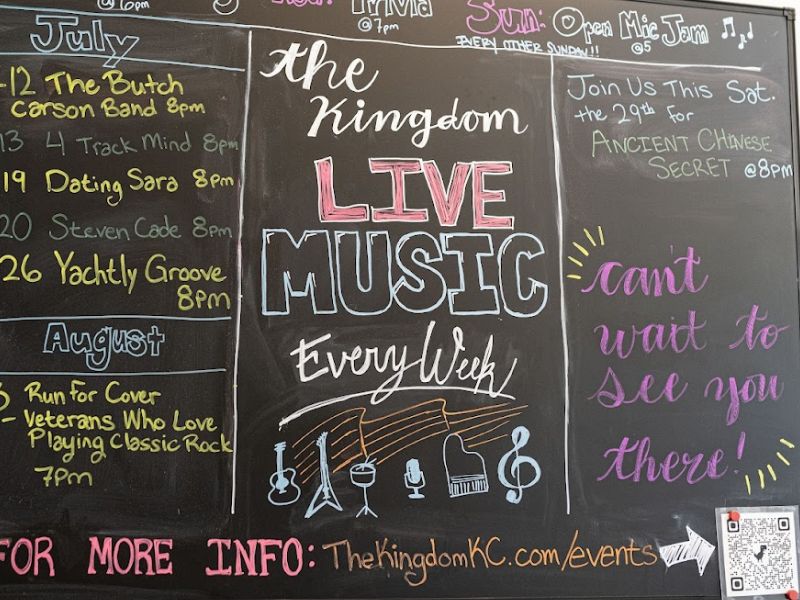 @6pm
Trivia
@7pm
Sun: Open Mic Jam
@5
EVERY OTHER SUNDAY!!
July
-12 The Butch
Carson Band 8pm
13 4 Track Mind 8pm
19 Dating Sara 8pm
20 Steven Cade 8pm
26 Yachtly Groove
8pm
August
Run For Cover
- Veterans Who Love
Playing Classic Rock
7pm
the
Kingdom
LIVE
MUSIC
Every Week
Join Us This Sat.
the 29th for
ANCIENT CHINESE
SECRET @8pm
can't
wait to
see you
there!
FOR MORE INFO: TheKingdomKC.com/events